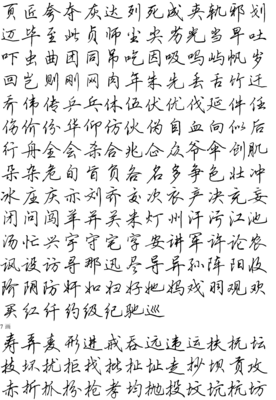 页匠夸夺灰达列死成夹轨邪划
迈毕至此贞师尘尖劣光当早吐
吓虫曲团同吊吃因吸吗屿帆岁
回岂则刚网肉年朱先丢舌竹迁
乔伟传乒乓休伍伏优伐延件任
伤价份华仰仿伙伪自血向似后
行舟全会杀合兆企众爷伞创肌
朵杂危旬旨负各名多争色壮冲
冰庄庆亦刘齐交次衣产决充妄
闭问闯羊并关米灯州汗污江池
汤忙兴宇守宅字安讲军许论农
讽设访寻那迅尽导异孙阵阳收
阶阴防奸如妇好她妈戏羽观欢
买红纤约级纪驰巡
7 画
寿弄麦形进戒吞远违运扶抚坛
技坏扰拒找批扯址走抄坝贡攻
赤折抓扮抢孝均抛投坟坑抗坊